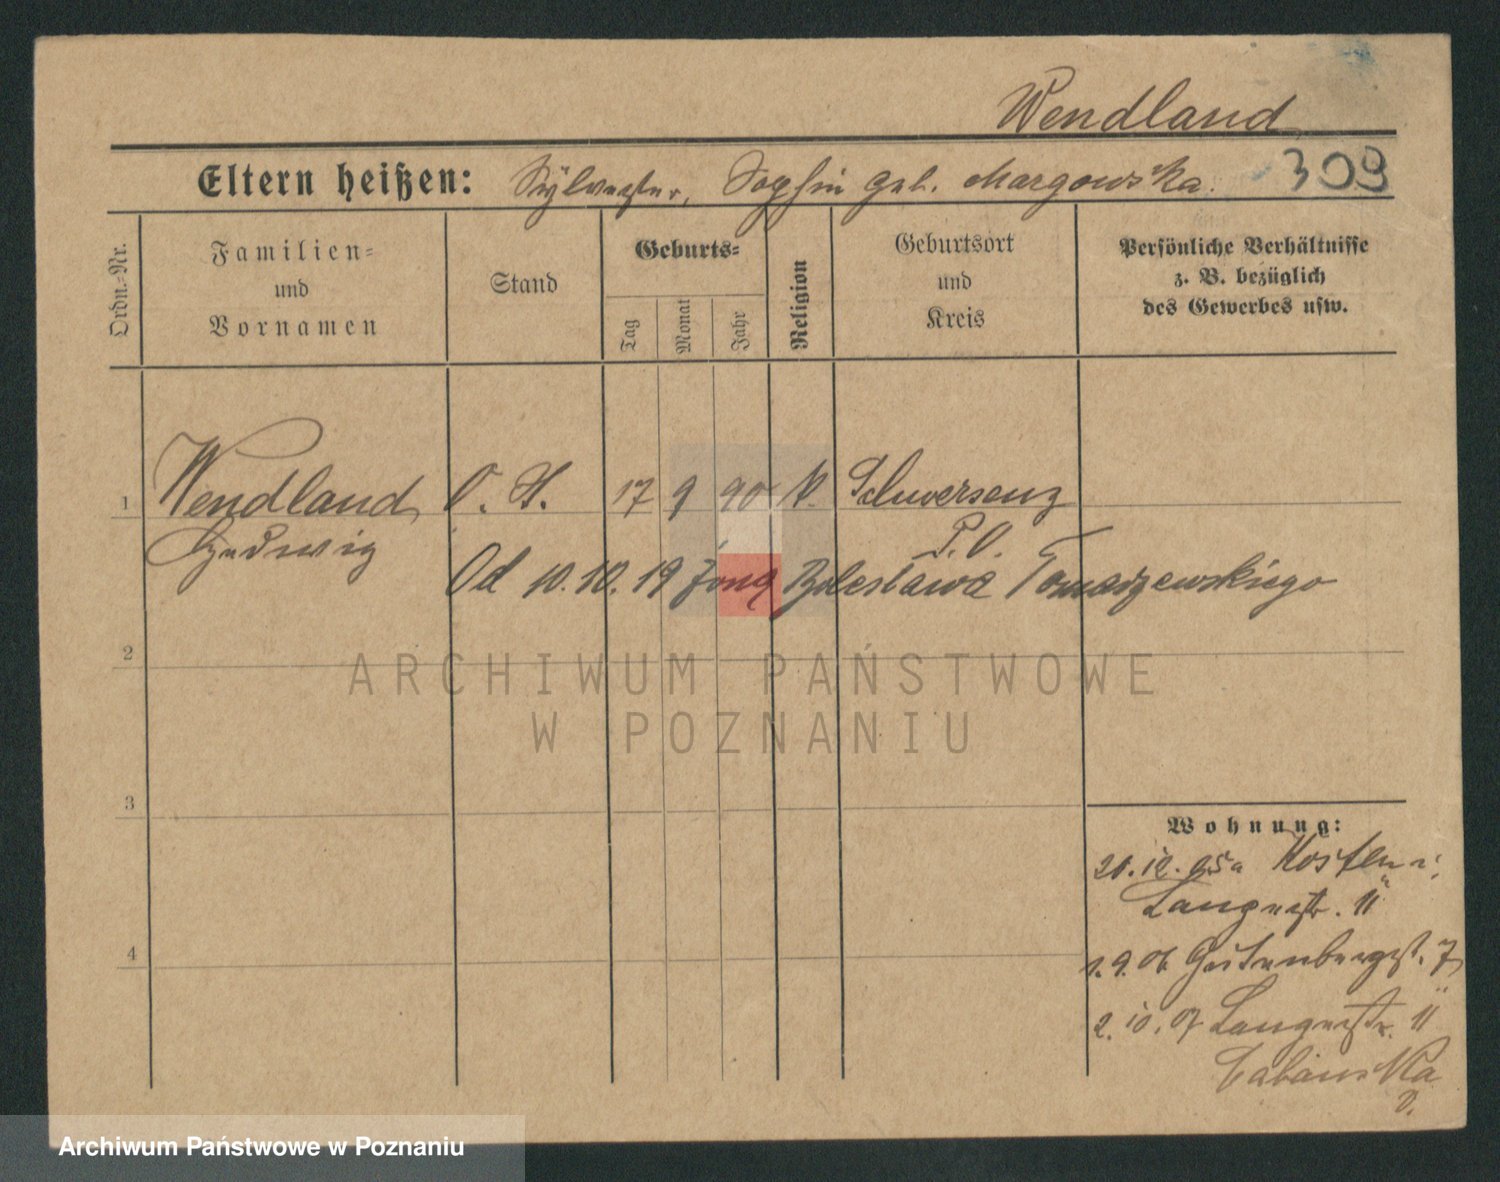 Wendland
Eltern heißen: Sylvester, Sophie geb. Margowska. 309
Ordn.-Nr.
Familien-
und
Vornamen
Stand
Geburts-
Tag
Monat
Jahr
Religion
Geburtsort
und
Kreis
Persönliche Verhältnisse
z. B. bezüglich
des Gewerbes usw.
1 Wendland O. H. 17 9 90 k. Schwersenz
Hedwig P. O.
Od 10.10.19 żona Bolesława Tomaszewskiego
2
ARCHIWUM PAŃSTWOWE
W POZNANIU
3
Wohnung:
21.12.05 a Kosten
Langestr. 11
4
1.9.06 Gutenbergst. 7
2.10.07 Langestr. 11
Archiwum Państwowe w Poznaniu